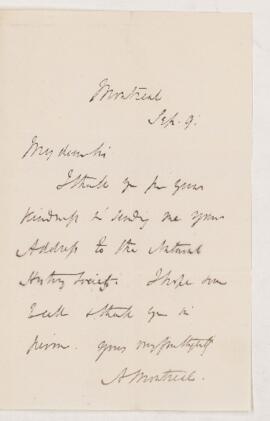 Montreal
Sep. 9.
My dear Sir
I thank you for your
kindness in sending me your
Address to the Natural
History Society. I hope soon
to call & thank you in
person. Yours very faithfully
A Montreal.